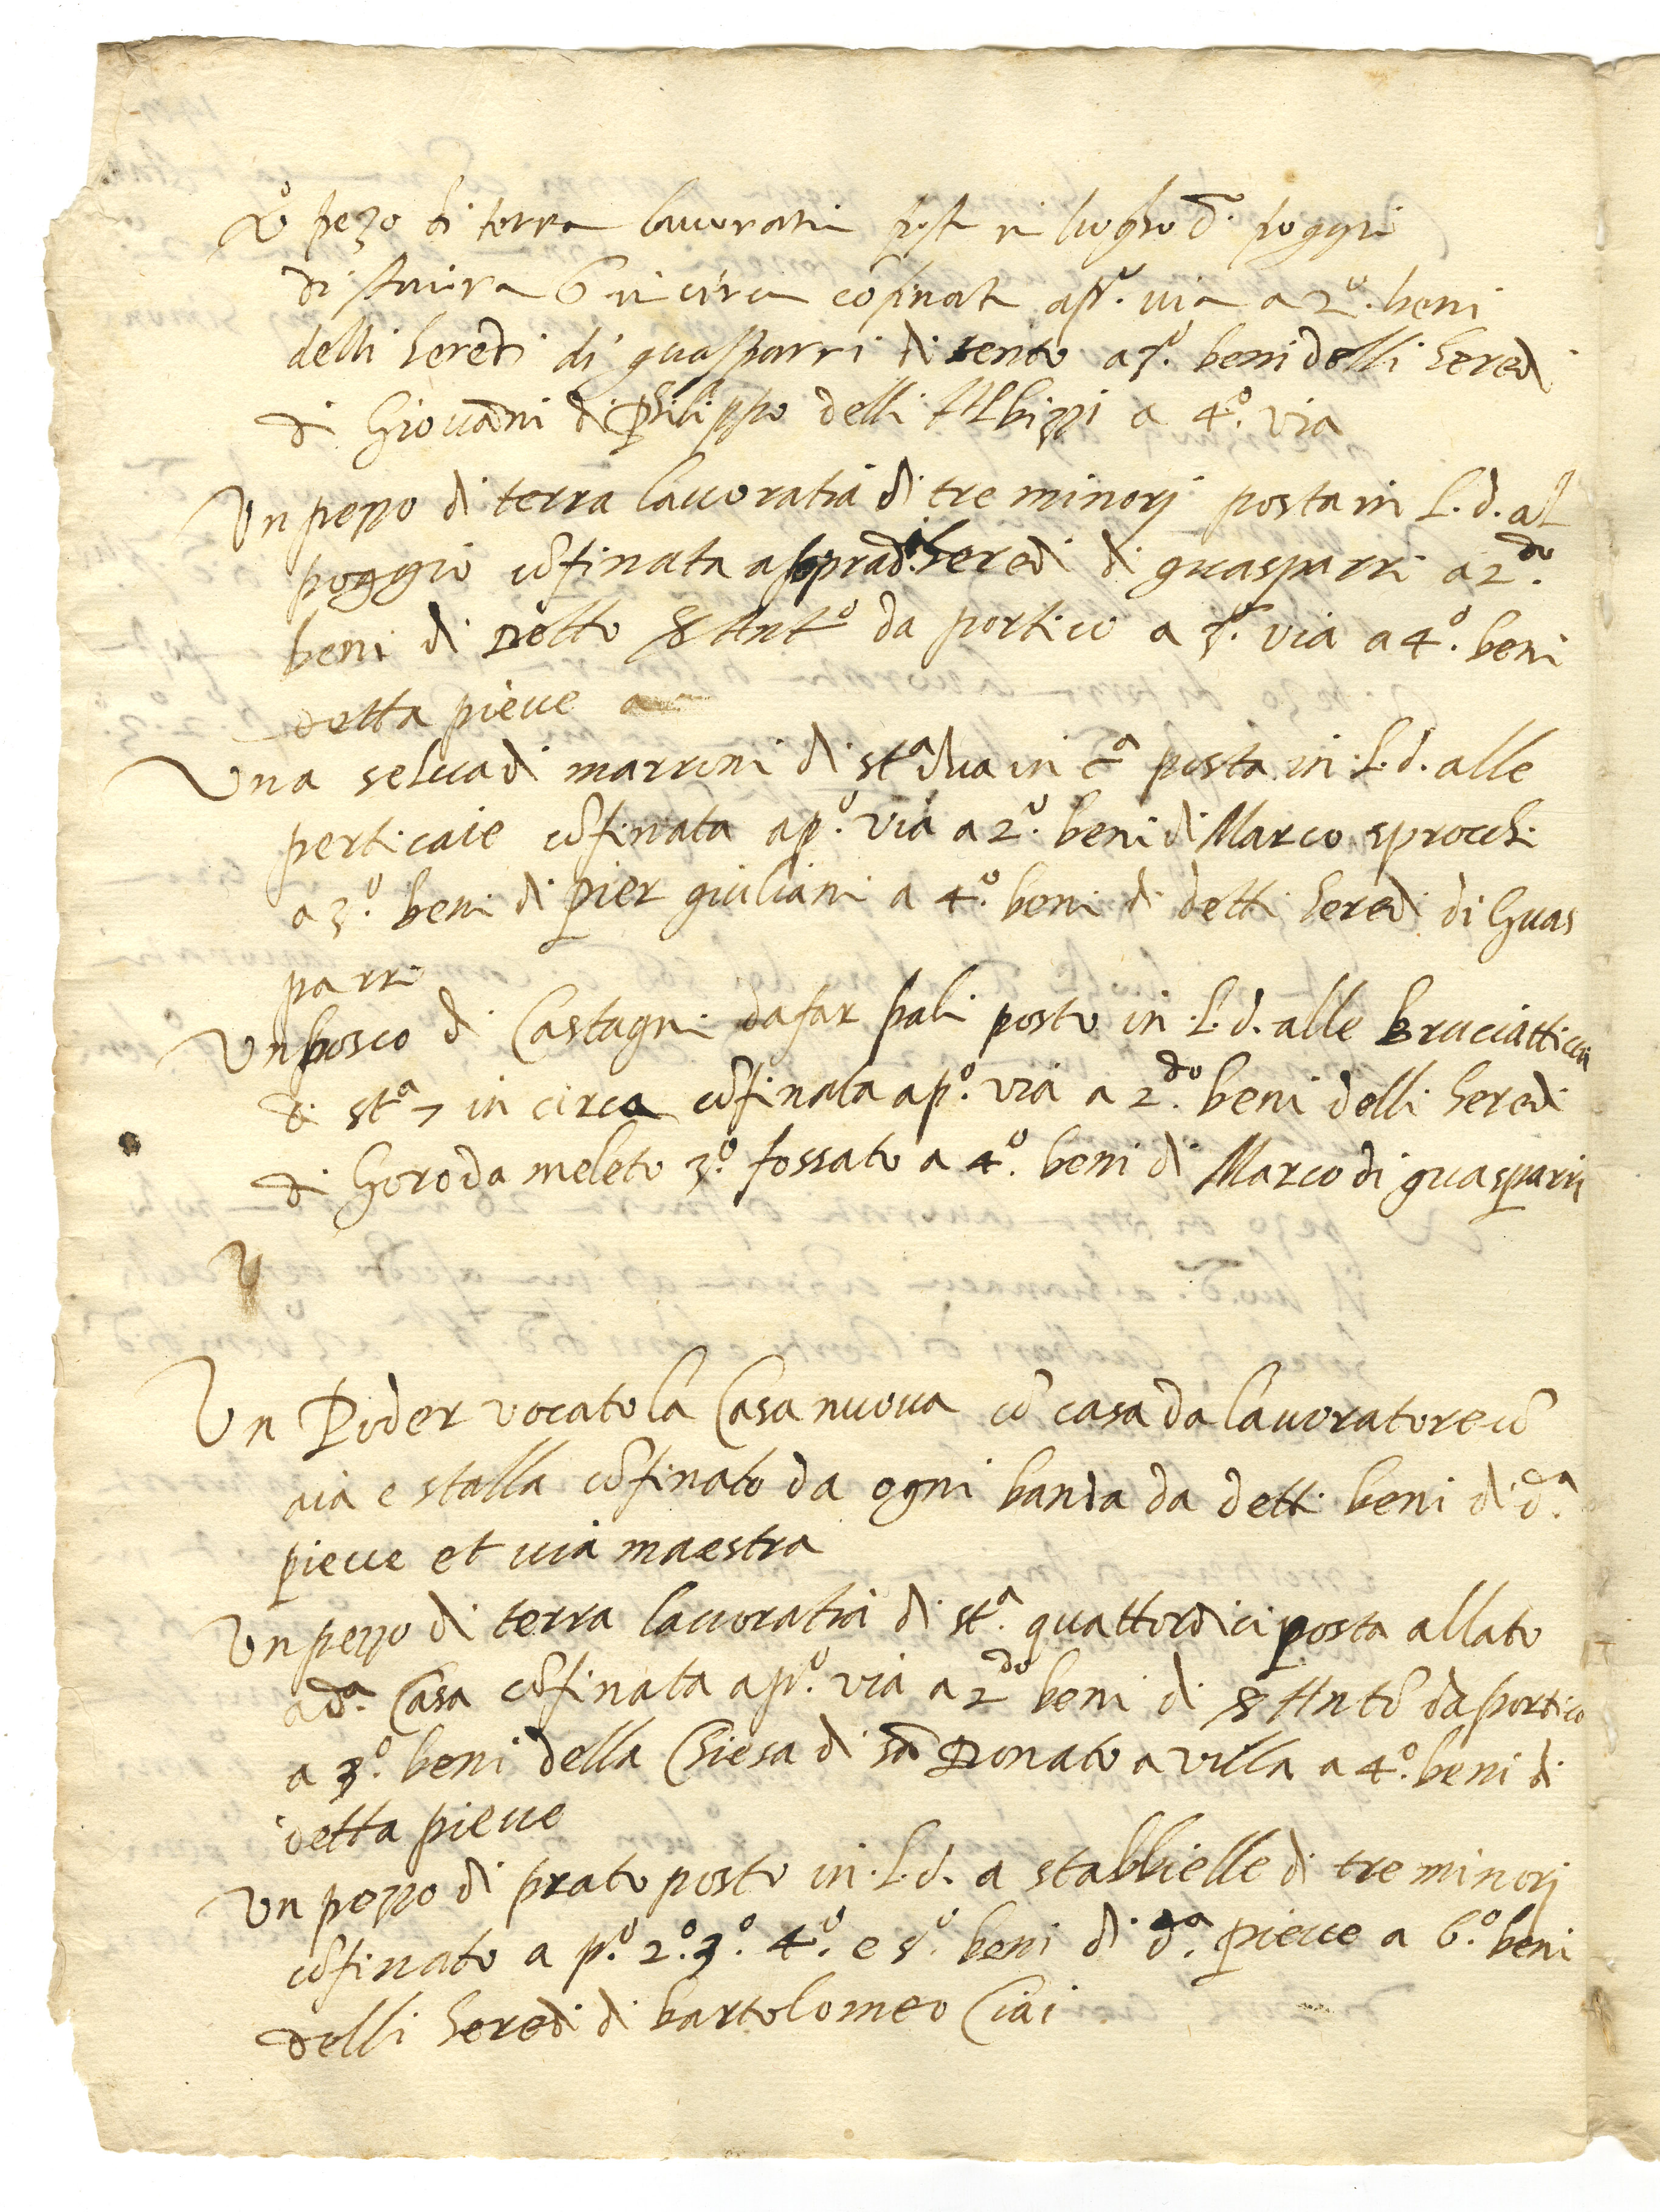 Vº pezo di terra lavoratia post in luogho d. poggi
di staiora 6 in circa cōfinata a pº. via a 2º. beni
delli heredi di guasparri di sento a 3º. beni delli heredi
di Giovānni di philippo delli Albizzi a 4º. via
Un pezzo di terra lavoratia di tre minorj posta in l. d. al
poggio cōfinata a sopradi heredi di guasparri a 2do.
beni di Detto ser Antº da portico a 3º. via a 4º. beni
detta pieve
Una selva di marroni di stª dua in cª posta in l. d. alle
perticaie cōfinata a pº. via a 2º. beni di Marco sprocchi
a 3º. beni di pier giuliani a 4º. beni di detti heredi di Guas
parri
Un bosco di Castagni da far pali posto in l. d. alle
di stª 7 in circa cōfinata a pº. via a 2do. beni delli heredi
di Goro da meleto 3º. fossato a 4º. beni di Marco di guasparri
V
Un Poder vocato la Casa nuova cō casa da lavoratore cō
aia e stalla cōfinato da ogni banda da detti beni di dª.
pieve et via maestra
Un pezzo di terra lavoratia di stª. quattordici posta allato
a dª. Casa cōfinata a pº. via a 2do beni di ser Antō da portico
a 3º. beni della Chiesa di sā Donato a villa a 4º. beni di
detta pieve
Un pezzo di prato posto in l. d. a stabbielle di tre minorj
cōfinato a pº. 2º. 3º. 4º. e 5º. beni di dª. pieve a 6º. beni
delli heredi di bartolomeo Ciai